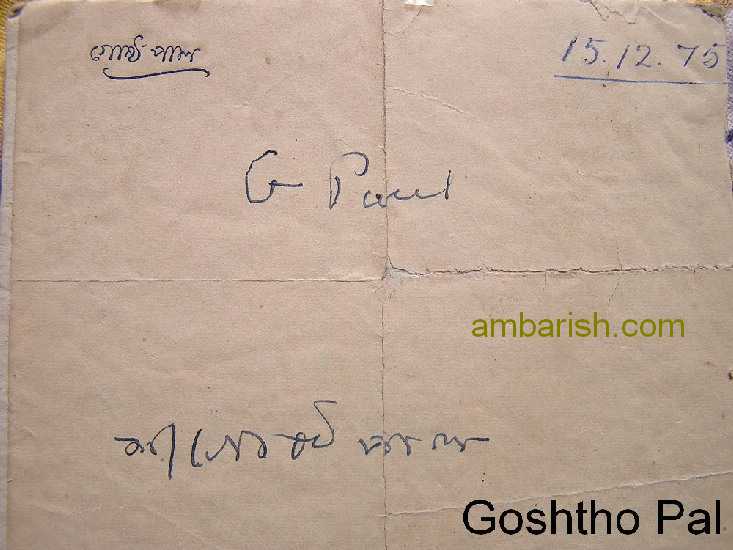 গোষ্ঠ পাল
15.12.75
G Paul
শ্রী গোষ্ঠ পাল
ambarish.com
Goshtho Pal